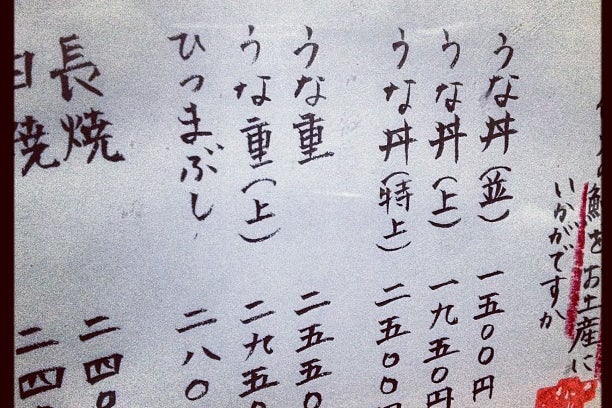 鰻をお土産に
いかがですか
うな丼(並) 一五〇〇円
うな丼(上) 一九五〇円
うな丼(特上) 二五〇〇円
うな重 二五五〇
うな重(上) 二九五〇
ひつまぶし 二八〇
長焼 二四〇
白焼 二四〇